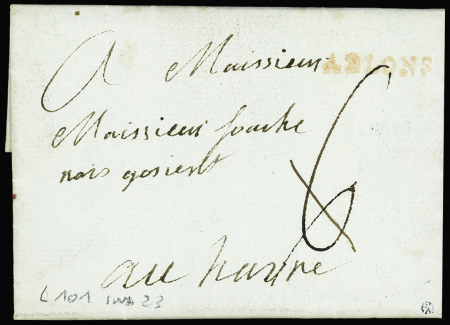 A Maissieur
AVIGNON
Maissieur fouche
nois gosient
6
au havre
L 101 ind 23